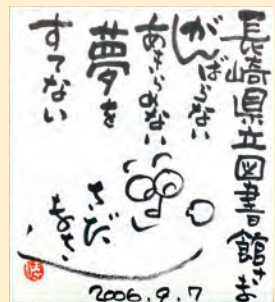 長崎県立図書館さま
がんばらない
あきらめない
夢を
すてない
さだ
まさし
2006.9.7